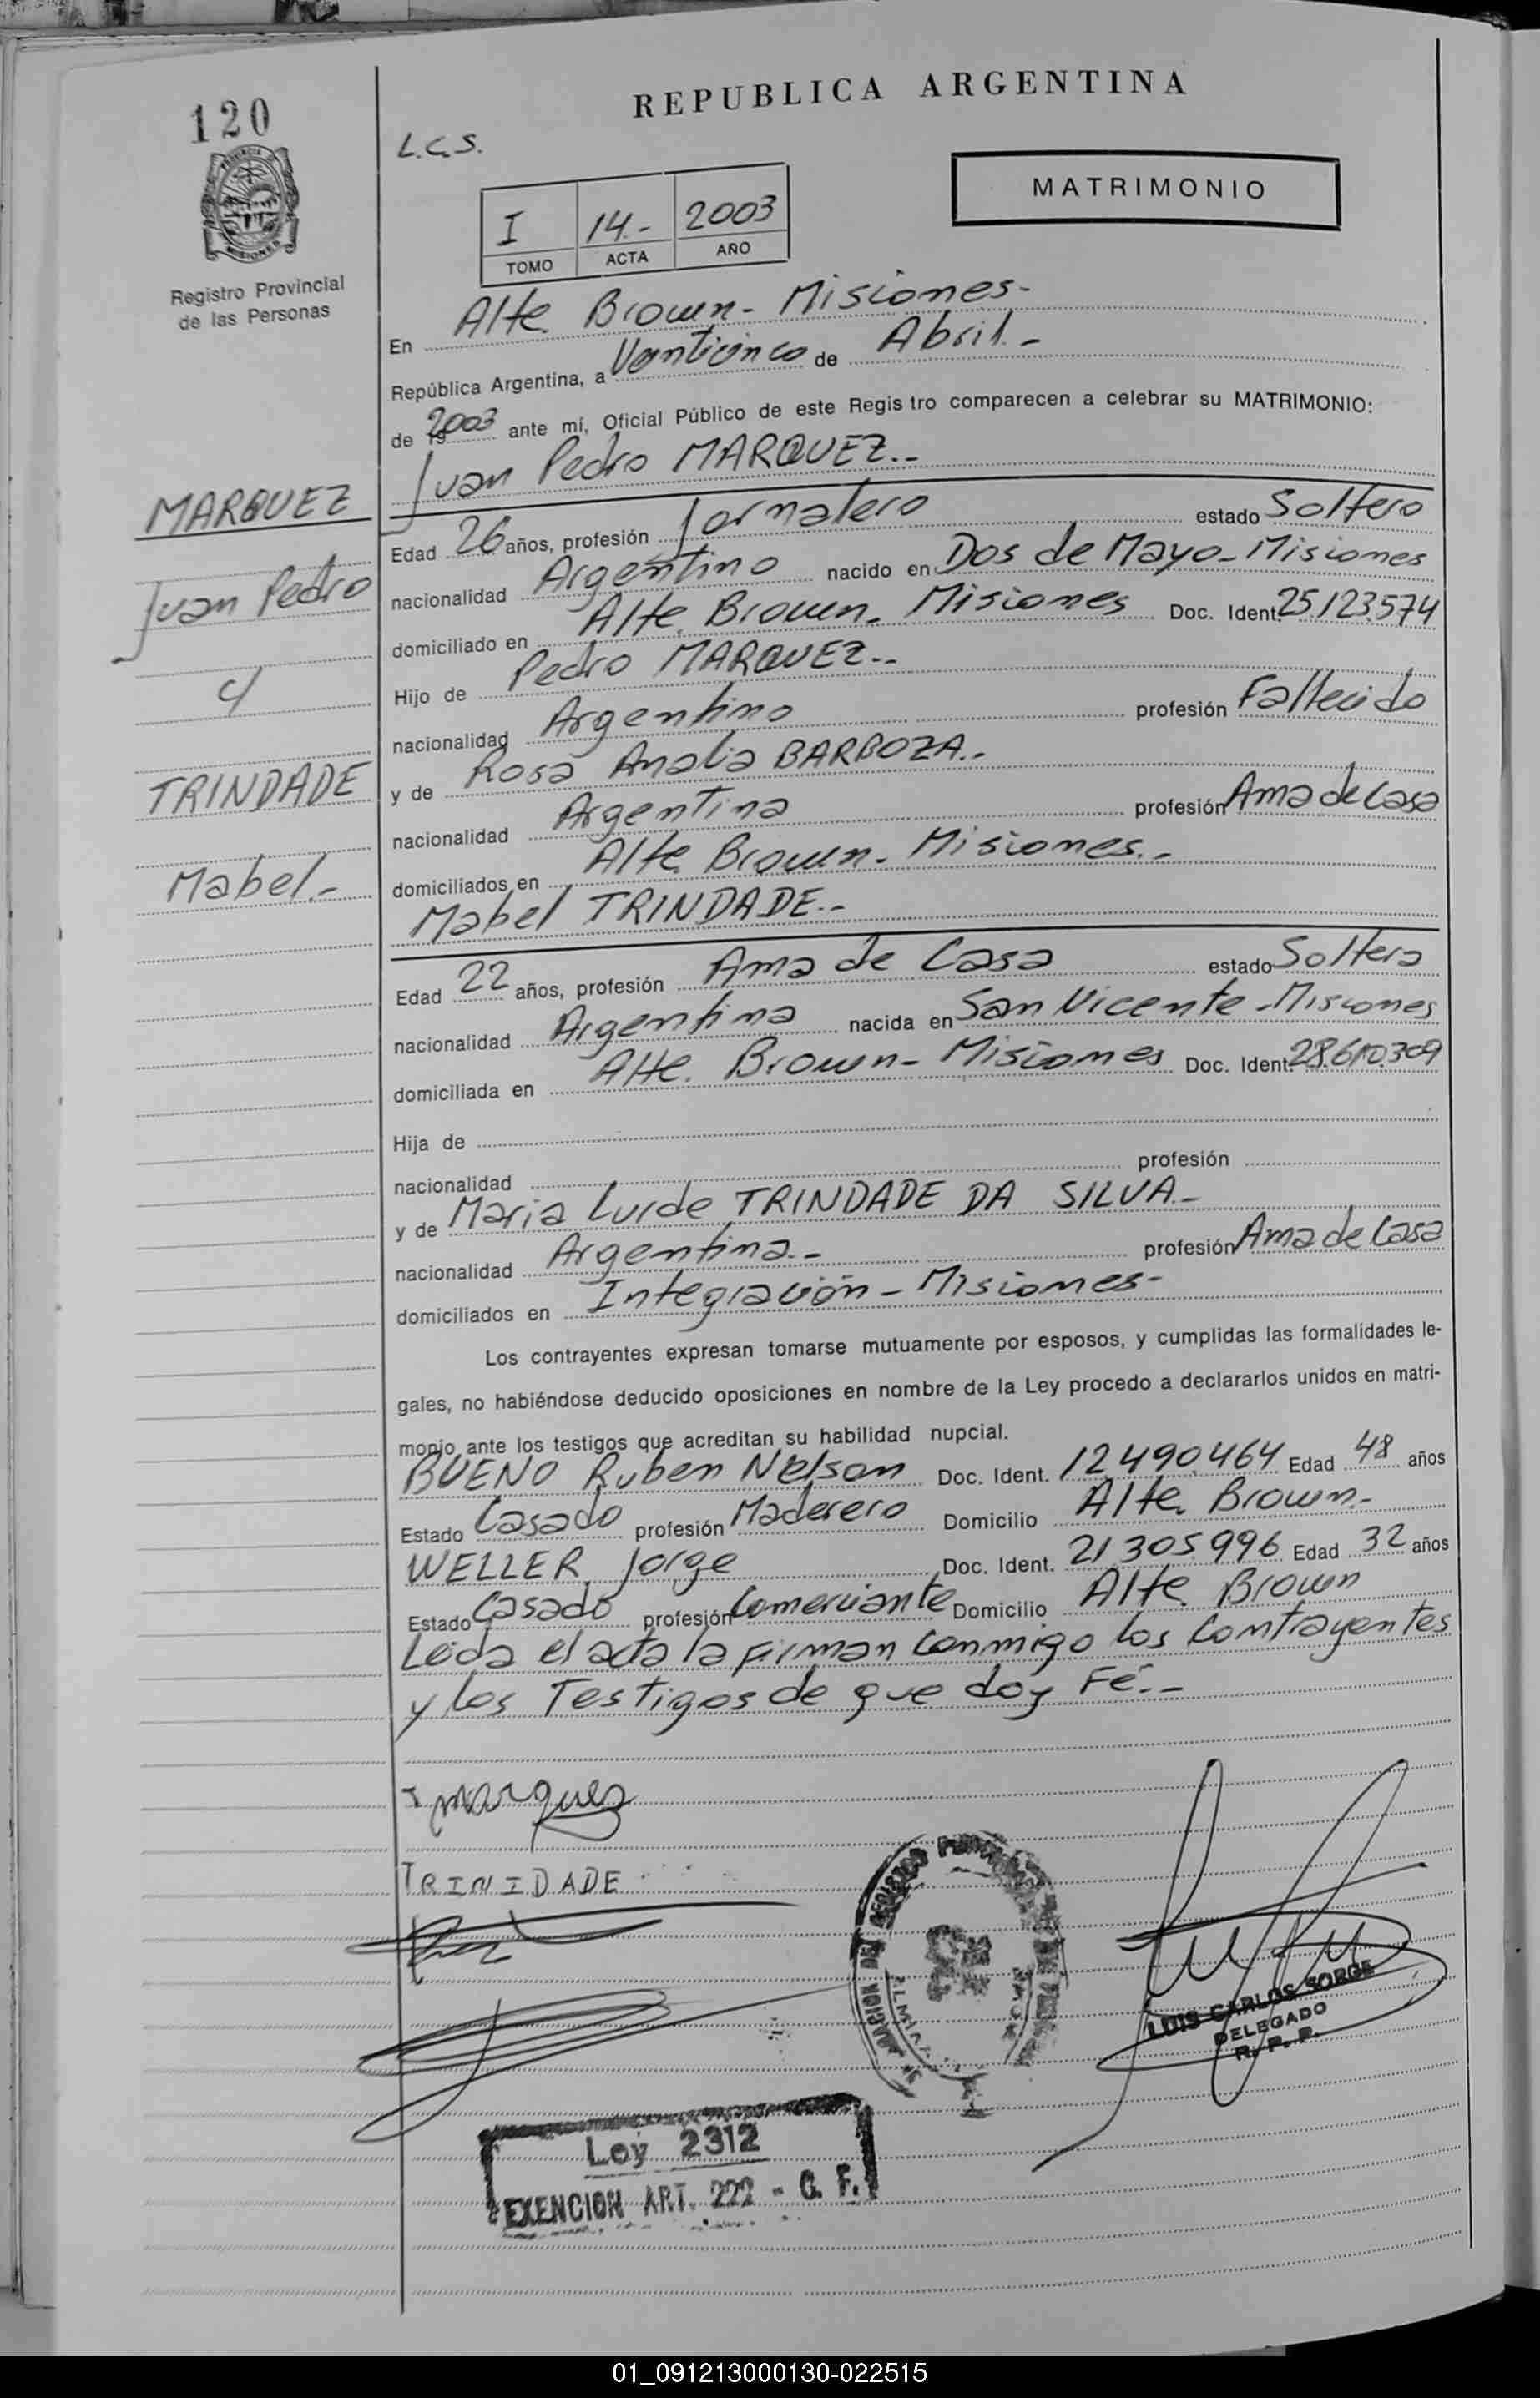 120
REPUBLICA ARGENTINA
L.C.S.
MATRIMONIO
PROVINCIA
MISIONES
Registro Provincial
de las Personas
I 14.- 2003
TOMO ACTA AÑO
En Alte. Brown - Misiones-
República Argentina, a Venticinco de Abril.-
de 19 2003 ante mí, Oficial Público de este Registro comparecen a celebrar su MATRIMONIO:
Juan Pedro MARQUEZ.-
MARQUEZ
Juan Pedro
c/
TRINDADE
Mabel.-
Edad 26 años, profesión Jornalero estado Soltero
nacionalidad Argentino nacido en Dos de Mayo - Misiones
domiciliado en Alte. Brown - Misiones Doc. Ident. 25.123.574
Hijo de Pedro MARQUEZ.-
nacionalidad Argentino profesión Fallecido
y de Rosa Analia BARBOZA.-
nacionalidad Argentina profesión Ama de Casa
domiciliados en Alte Brown - Misiones.-
Mabel TRINDADE.-
Edad 22 años, profesión Ama de Casa estado Soltera
nacionalidad Argentina nacida en San Vicente - Misiones
domiciliada en Alte. Brown - Misiones Doc. Ident. 28.610.309
Hija de
nacionalidad profesión
y de Maria Lurde TRINDADE DA SILVA.-
nacionalidad Argentina.- profesión Ama de Casa
domiciliados en Integración - Misiones-
Los contrayentes expresan tomarse mutuamente por esposos, y cumplidas las formalidades le-
gales, no habiéndose deducido oposiciones en nombre de la Ley procedo a declararlos unidos en matri-
monio ante los testigos que acreditan su habilidad nupcial.
BUENO Ruben Nelson Doc. Ident. 12.490.464 Edad 48 años
Estado Casado profesión Maderero Domicilio Alte. Brown.-
WELLER, Jorge Doc. Ident. 21.305.996 Edad 32 años
Estado Casado profesión Comerciante Domicilio Alte. Brown
Leida el acta la firman conmigo los Contrayentes
y los Testigos de que doy Fé.-
J marquez
TRINIDADE
LUIS CARLOS SORGE
DELEGADO
R. P. P.
Ley 2312
EXENCION ART. 222 - C. F.
01_091213000130-022515